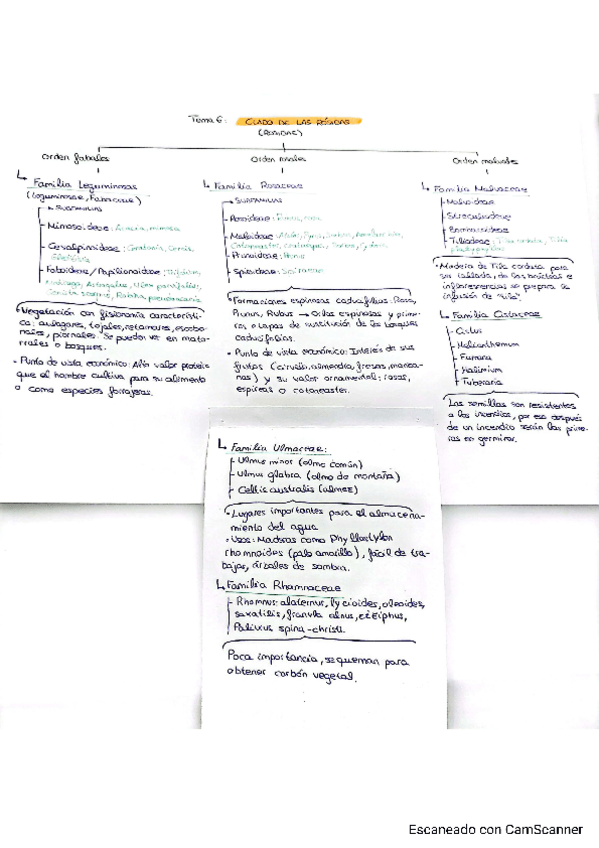 Tema 6: CLADO DE LAS RÓSIDAS
(ROSIDAE)
Orden fabales
Familia Leguminosas
(Leguminosae, Fabaceae)
SUBFAMILIAS
Mimosoideae: Acacia, mimosa
Cesalpinoideae: Ceratonia, Cercis,
Faboideae/Papilionoideae:
Astragalus,
Vegetación con fisionomía característi-
ca: aulagares, tojales, retamares, escobo-
nales, piornales. Se pueden ver en mato-
rrales o bosques.
Punto de vista económico: Alto valor proteico
que el hombre cultiva para su alimento
o como especies forrajeras.
Orden rosales
Familia Rosaceae
SUBFAMILIAS
Rosoideae: Rubus, rosa
Maloideae: Malus, Pyrus, Sorbus, Amelanchier,
Cotoneaster, Crataegus,
Prunoideae: Prunus
Spiraeoideae:
Formaciones espinosas caducifolias: Rosa,
Prunus, Rubus → Orlas espinosas y prime-
ras etapas de sustitución de los bosques
caducifolios.
Punto de vista económico: Interés de sus
frutos (ciruela, almendra, fresas, manza-
nas) y su valor ornamental: rosas,
espireas o cotoneaster.
Orden malvales
Familia Malvaceae
Malvoideae
Sterculioideae
Bombacoideae
Tilioideae: Tilia cordata, Tilia
platyphyllos
Madera de Tilia cordata para
ser tallada, de las brácteas e
inflorescencias se prepara la
infusión de "tila".
Familia Cistaceae
Cistus
Helianthemum
Fumana
Halimium
Tuberaria
Las semillas son resistentes
a los incendios, por eso después
de un incendio serán las prime-
ras en germinar.
Familia Ulmaceae:
Ulmus minor (olmo común)
Ulmus glabra (olmo de montaña)
Celtis australis (almez)
Lugares importantes para el almacena-
miento del agua
Usos: Maderas como Phyllostylon
rhamnoides (palo amarillo), fácil de tra-
bajar, árboles de sombra.
Familia Rhamnaceae
Rhamnus: alaternus, lycioides, oleoides,
saxatilis, frangula alnus, ziziphus,
Paliurus spina-christi.
Poca importancia, se queman para
obtener carbón vegetal.
Escaneado con CamScanner